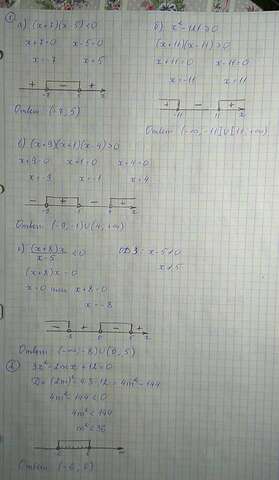 ①
а) (x+7)(x-5)<0
x+7=0 x-5=0
x=-7 x=5
+ - +
-7 5 x
Ответ: (-7; 5)
б) x²-121≥0
(x+11)(x-11)≥0
x+11=0 x-11=0
x=-11 x=11
+ - +
-11 11 x
Ответ: (-∞; -11]U[11; +∞)
в) (x+9)(x+1)(x-4)>0
x+9=0 x+1=0 x-4=0
x=-9 x=-1 x=4
- + - +
-9 -1 4 x
Ответ: (-9; -1)U(4; +∞)
(x+8)x / x-5 <0 ОДЗ: x-5≠0
(x+8)x=0 x≠5
x=0 или x+8=0
x=-8
- + - +
Ответ: (-∞; -8)U(0; 5)
②
3x²-2mx+12=0
D=(2m)²-4·3·12=4m²-144
4m²-144<0
4m²<144
m²<36
Ответ: (-6; 6)